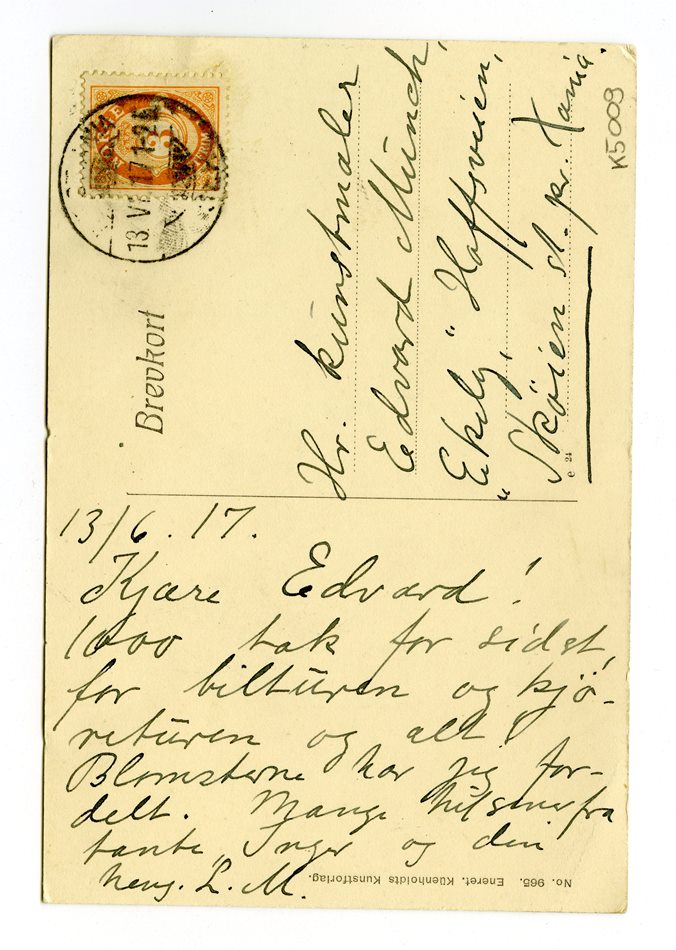 K5009
NORGE
3
13 VI 17 1-2
Brevkort
Hr. kunstmaler
Edvard Munch,
"Ekely" Hoffsveien,
"Skøien st. pr. Kania.
e 24
13/6. 17.
Kjære Edvard!
1000 tak for sidst,
for bilturen og kjø-
returen og alt!
Blomsterne har jeg for-
delt. Mange hilsener fra
tante, Inger og din
heng. L. M.
No. 965. Eneret. Küenholdts Kunstforlag.